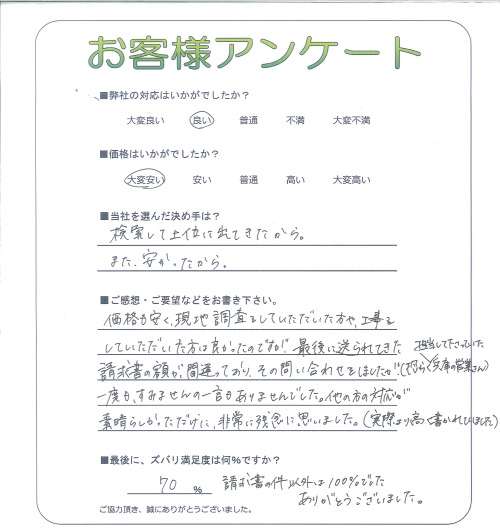 お客様アンケート
■弊社の対応はいかがでしたか？
大変良い 良い 普通 不満 大変不満
■価格はいかがでしたか？
大変安い 安い 普通 高い 大変高い
■当社を選んだ決め手は？
検索して上位に出てきたから。
また、安かったから。
■ご感想・ご要望などをお書き下さい。
価格も安く、現地調査をしていただいた方や、工事を
していただいた方は良かったのですが、最後に送られてきた
請求書の額が間違っており、その問い合わせをしましたが(おそらく兵庫の営業さん)
担当して下さっていた
一度も、すみませんの一言もありませんでした。他の方の対応が
素晴らしかっただけに、非常に残念に思いました。(実際より高く書かれていました)
■最後に、ズバリ満足度は何％ですか？
70 ％ 請求書の件以外は100％でした
ありがとうございました。
ご協力頂き、誠にありがとうございました。